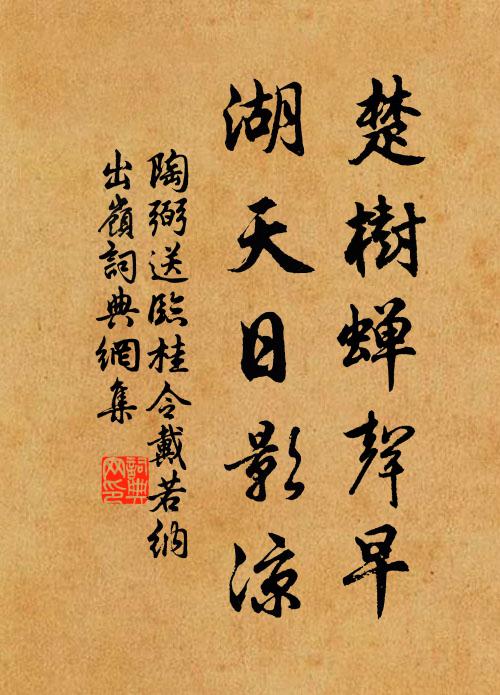 楚樹蟬聲早
湖天日影凉
陶弼送臨桂令戴若納
出嶺詞典網集
詞典
网印